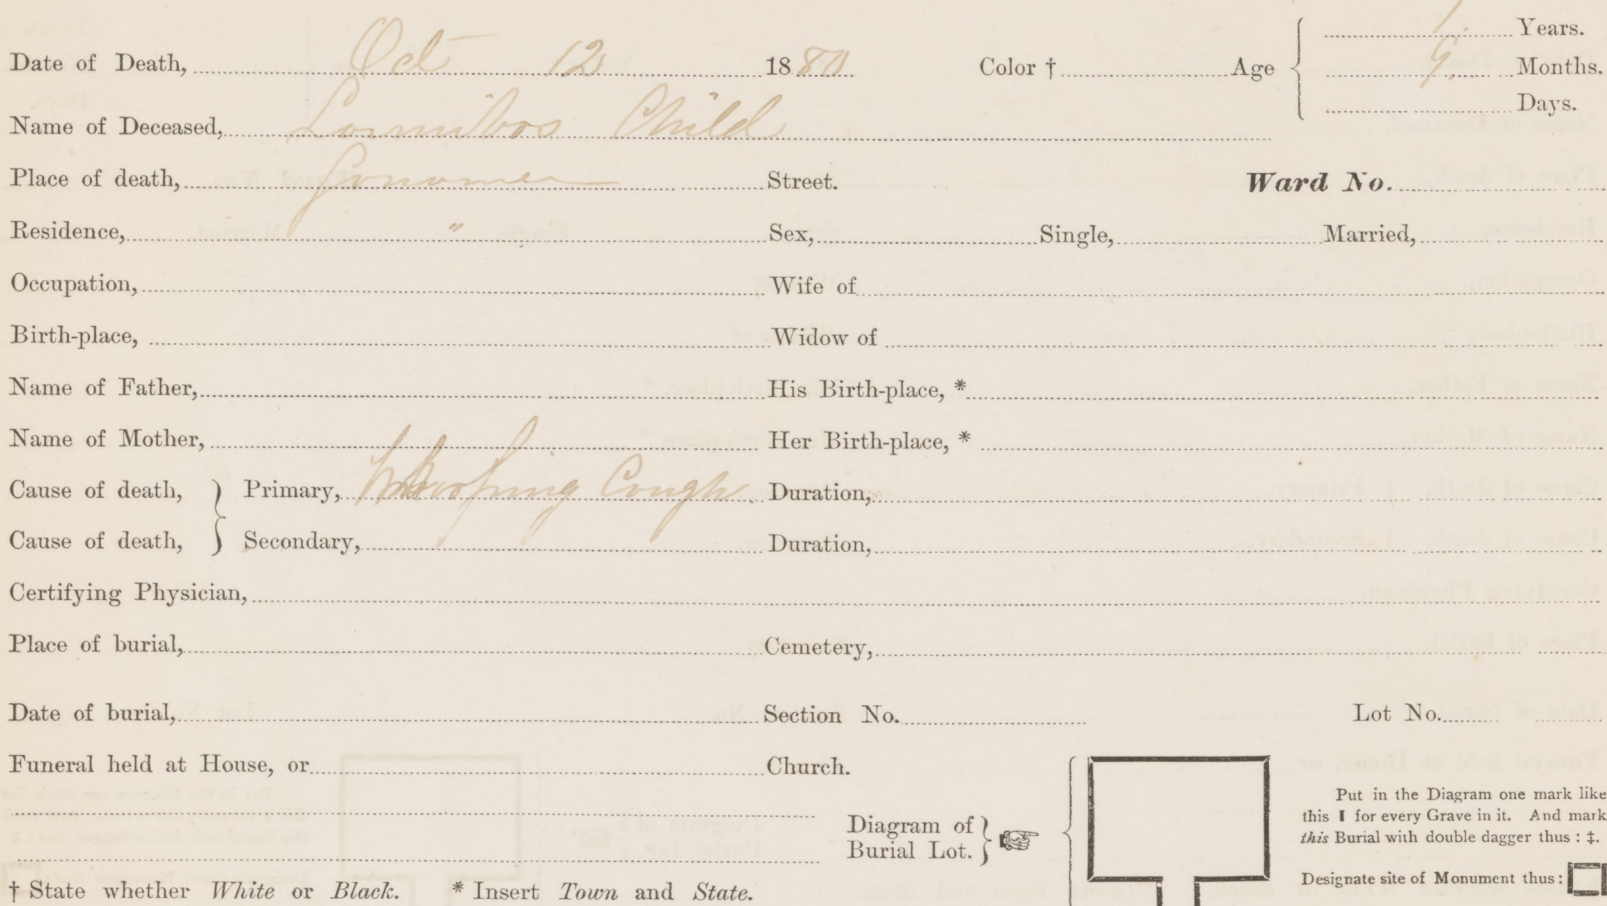 Date of Death, Oct 12 1880 Color † Age 1 Years.
9 Months.
Days.
Name of Deceased, Child
Place of death, Street. Ward No.
Residence, " Sex, Single, Married,
Occupation, Wife of
Birth-place, Widow of
Name of Father, His Birth-place, *
Name of Mother, Her Birth-place, *
Cause of death, Primary, Whooping Cough Duration,
Cause of death, Secondary, Duration,
Certifying Physician,
Place of burial, Cemetery,
Date of burial, Section No. Lot No.
Funeral held at House, or Church.
Diagram of
Burial Lot.
Put in the Diagram one mark like
this ❙ for every Grave in it. And mark
this Burial with double dagger thus : ‡.
Designate site of Monument thus :
† State whether White or Black. * Insert Town and State.